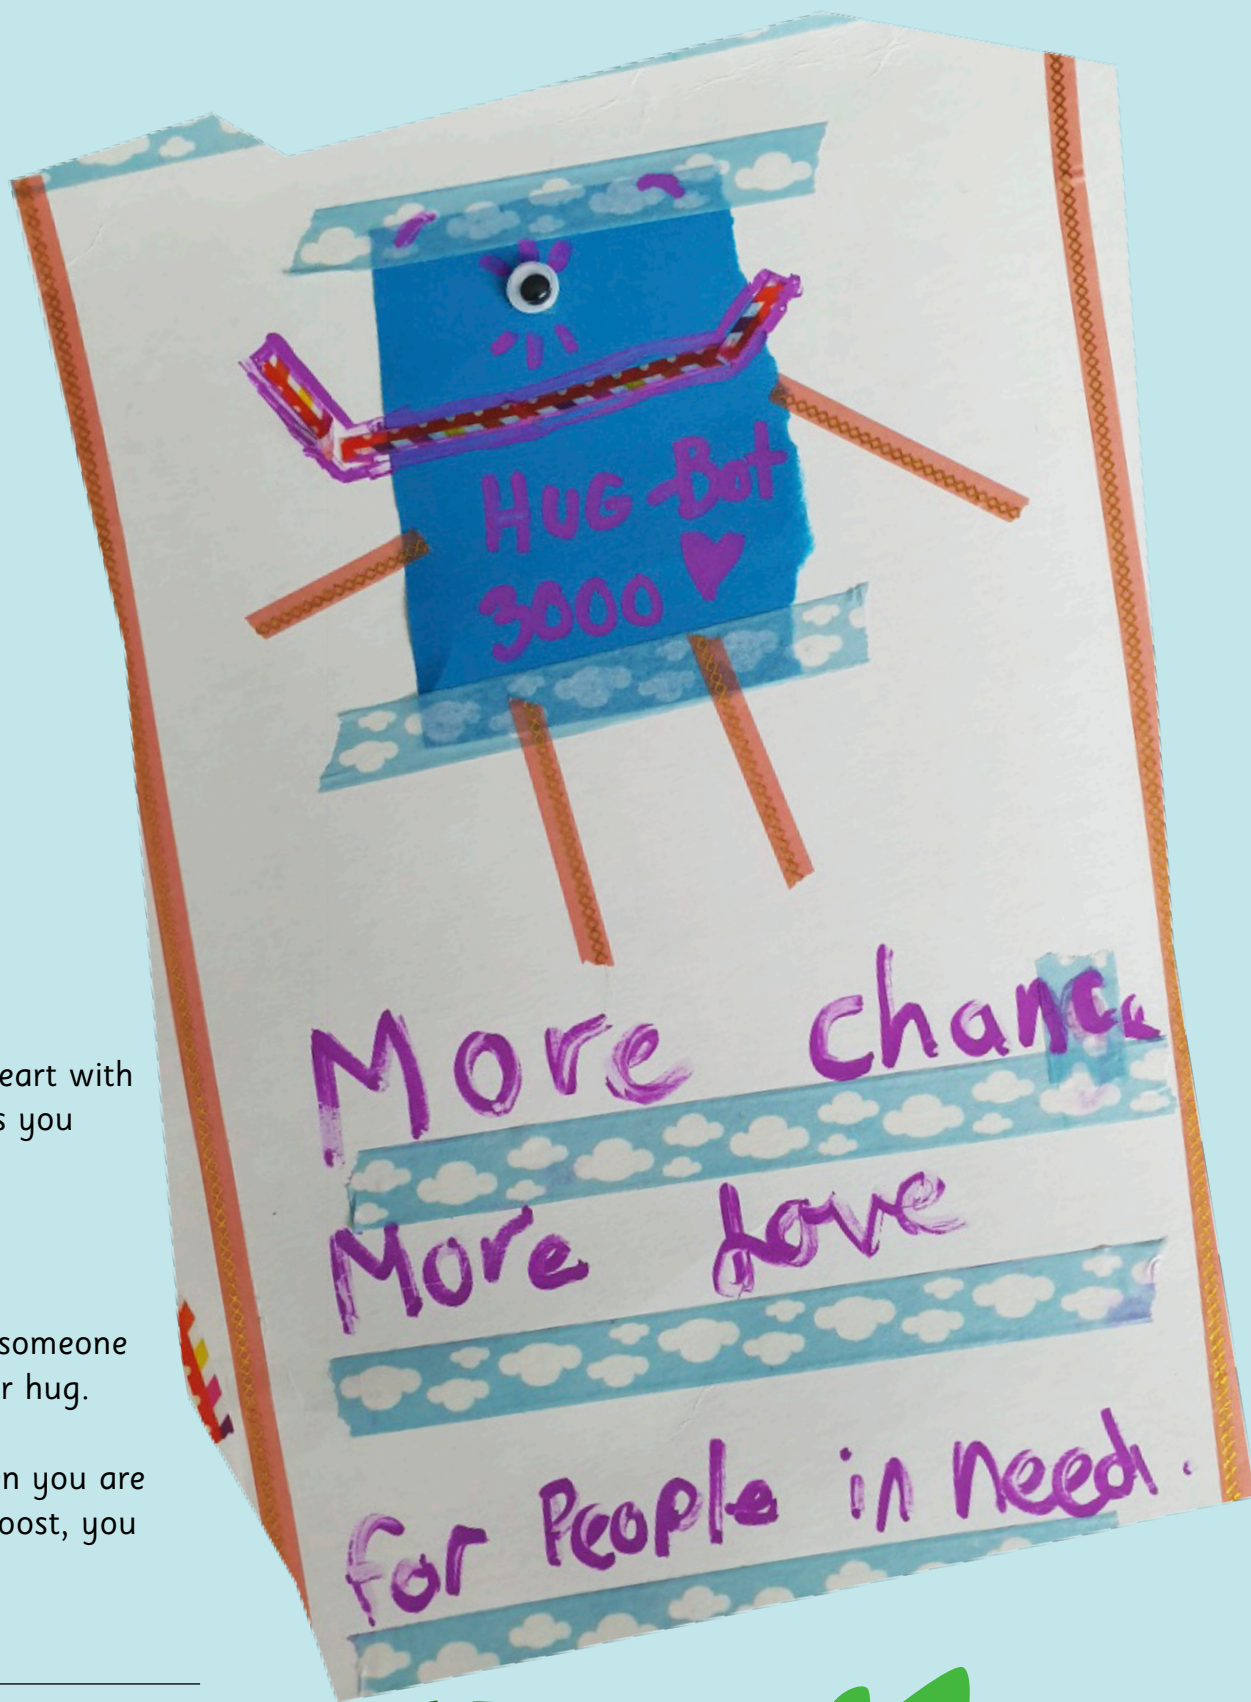 HUG-Bot
3000
More chance
More Love
for People in need.
eart with
s you
someone
r hug.
n you are
oost, you